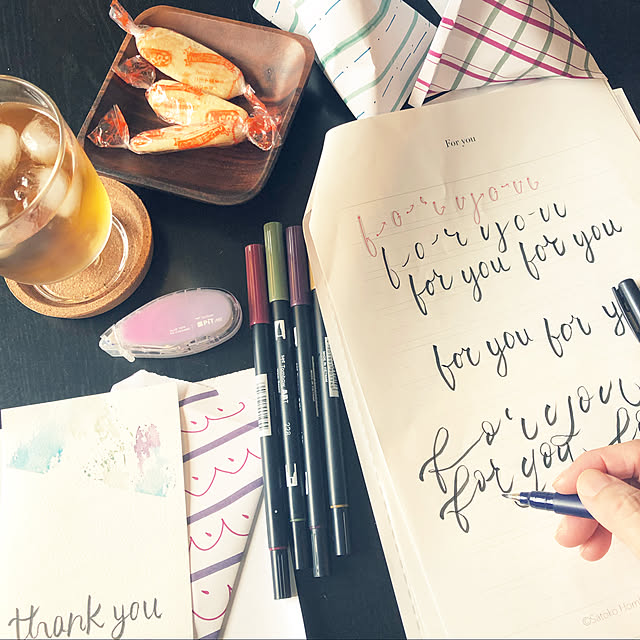 For you
f o r y o u
f o r y o u
for you for you
for you for y
f o r y o u
for you fo
thank you
PiT
Tombow ABT
228
©Satoko Hom